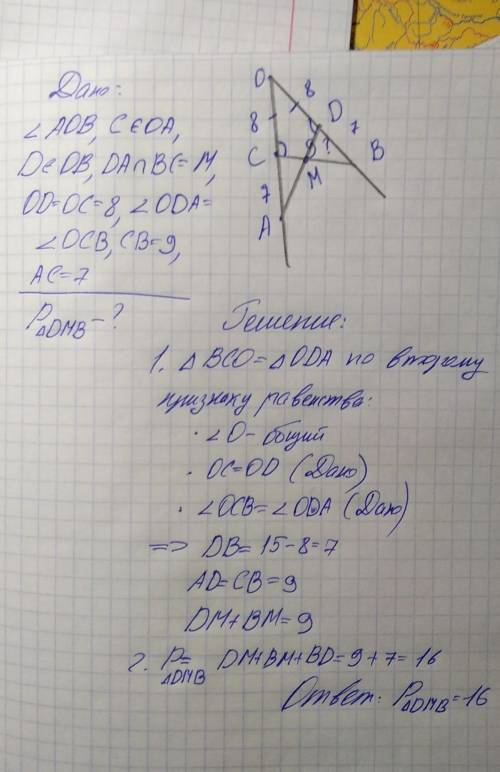 Дано:
∠AOB, C∈OA,
D∈OB, DA∩BC=M,
OD=OC=8, ∠ODA=
∠OCB, CB=9,
AC=7
P△DMB-?
O
8
8
D
7
C
B
M
7
A
Решение:
1. △BCO=△ODA по второму
признаку равенства:
· ∠O- общий
· OC=OD (Дано)
· ∠OCB=∠ODA (Дано)
=> DB=15-8=7
AD=CB=9
DM+BM=9
2. P△DMB= DM+BM+BD=9+7=16
Ответ: P△DMB=16